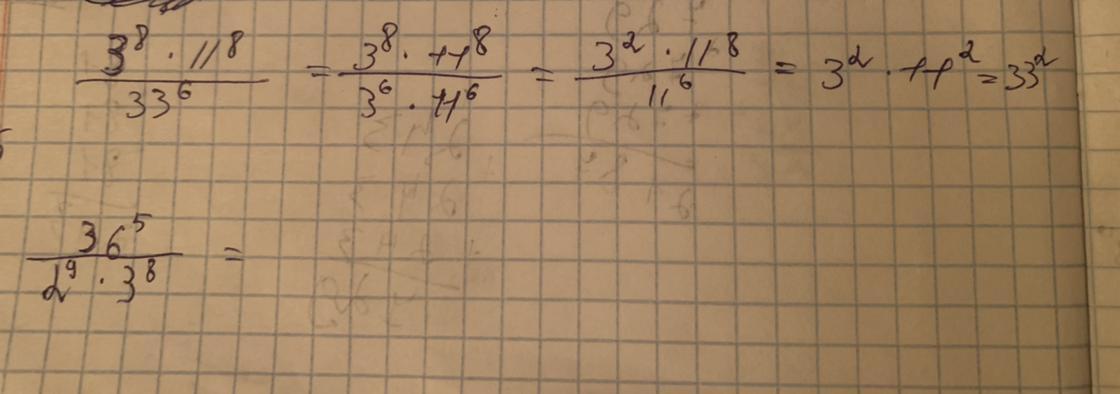 3⁸ · 11⁸ / 33⁶ = 3⁸ · 11⁸ / 3⁶ · 11⁶ = 3² · 11⁸ / 11⁶ = 3² · 11² = 33²
36⁵ / 2⁹ · 3⁸ =